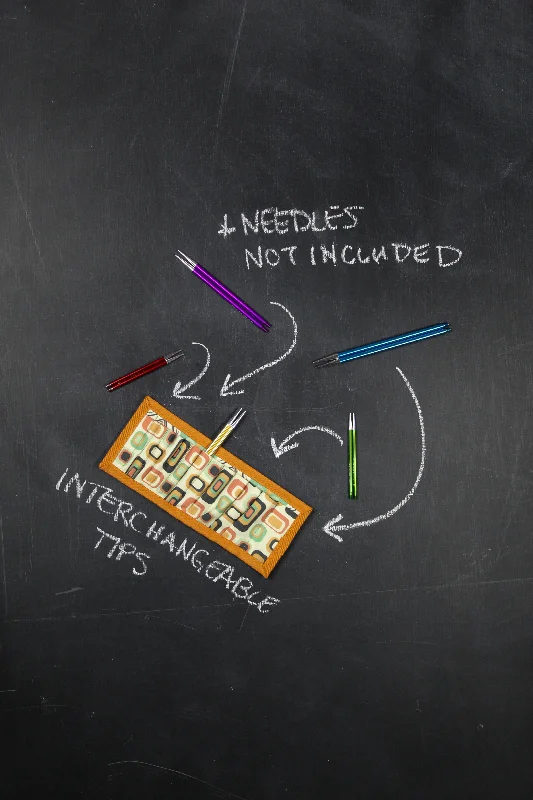 *NEEDLES
NOT INCLUDED
INTERCHANGEABLE
TIPS